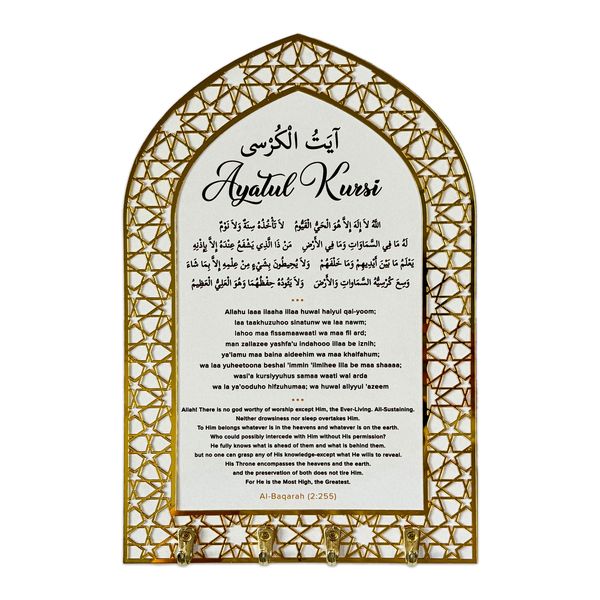 آيَتُ الْكُرْسى
Ayatul Kursi
اللَّهُ لاَ إِلَهَ إِلاَّ هُوَ الْحَيُّ الْقَيُّومُ لاَ تَأْخُذُهُ سِنَةٌ وَلاَ نَوْمٌ
لَهُ مَا فِي السَّمَاوَاتِ وَمَا فِي الأَرْضِ مَنْ ذَا الَّذِي يَشْفَعُ عِنْدَهُ إِلاَّ بِإِذْنِهِ
يَعْلَمُ مَا بَيْنَ أَيْدِيهِمْ وَمَا خَلْفَهُمْ وَلاَ يُحِيطُونَ بِشَيْءٍ مِنْ عِلْمِهِ إِلاَّ بِمَا شَاءَ
وَسِعَ كُرْسِيُّهُ السَّمَاوَاتِ وَالأَرْضَ وَلاَ يَئُودُهُ حِفْظُهُمَا وَهُوَ الْعَلِيُّ الْعَظِيمُ
Allahu laaa ilaaha illaa huwal haiyul qai-yoom;
laa taakhuzuhoo sinatunw wa laa nawm;
lahoo maa fissamaawaati wa maa fil ard;
man zallazee yashfa'u indahooo illaa be iznih;
ya'lamu maa baina aideehim wa maa khalfahum;
wa laa yuheetoona beshai 'immin 'ilmihee illa be maa shaaaa;
wasi'a kursiyyuhus samaa waati wal arda
wa la ya'ooduho hifzuhumaa; wa huwal allyyul 'azeem
Allah! There is no god worthy of worship except Him, the Ever-Living. All-Sustaining.
Neither drowsiness nor sleep overtakes Him.
To Him belongs whatever is in the heavens and whatever is on the earth.
Who could possibly intercede with Him without His permission?
He fully knows what is ahead of them and what is behind them.
but no one can grasp any of His knowledge-except what He wills to reveal.
His Throne encompasses the heavens and the earth.
and the preservation of both does not tire Him.
For He is the Most High, the Greatest.
Al-Baqarah (2:255)